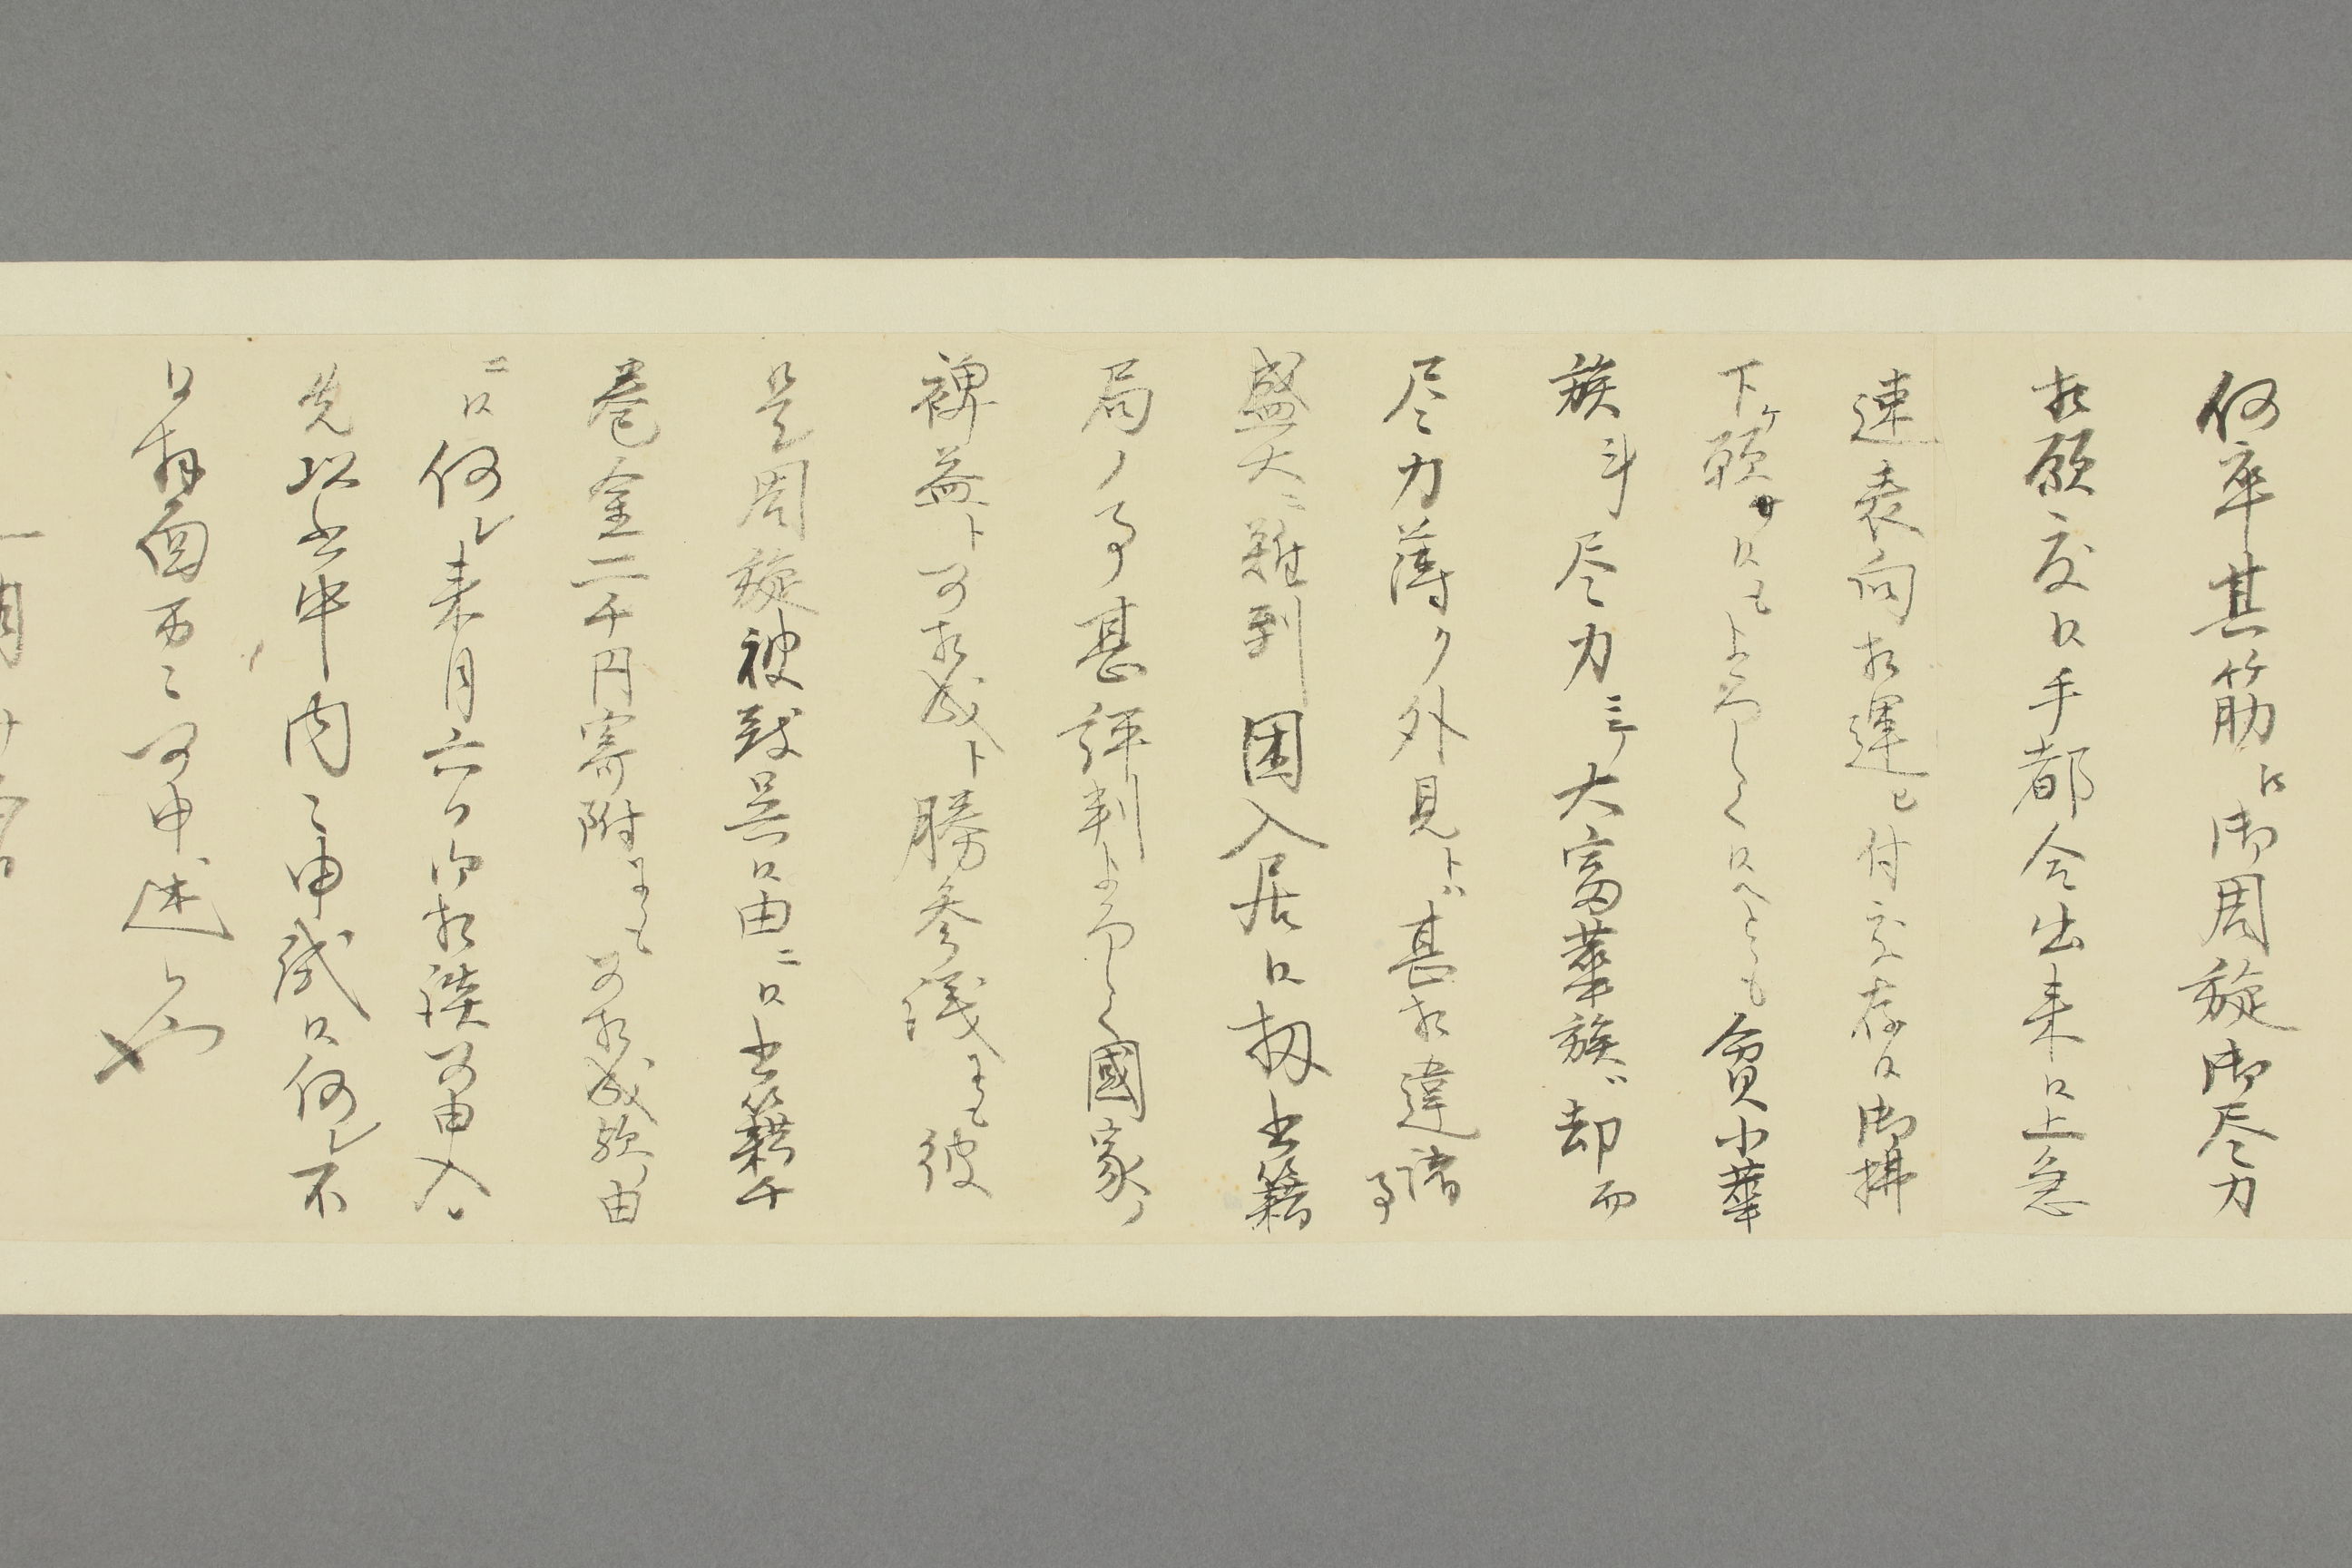 何卒其筋江御周旋御尽力
相願度候手都合出来候上急
速表向相運ヒ付度存候御拂
下ケ願ハ候ても上ろしく候へとも貧小華
族斗尽力ニ而大富華族ハ却而
尽力薄ク外見トハ甚相違諸事
盛大ニ難到困入居候扨書籍
局ノ事甚評判よろしく國家ノ
裨益ト可相成ト勝参議ニも彼
是周旋被致呉候由ニ候書籍千
巻金二千円寄附ニも可相成歟ノ由
ニ候何レ来月六日御相談可申入候
先以書中内々申試候何レ不
日拝面万々可申述候也